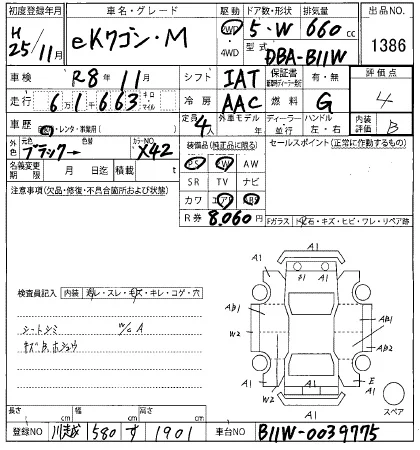 初度登録年月 車名・グレード 駆動 ドア数・形状 排気量 出品NO
H25/11月 eKワゴン・M 2WD ・4WD 5・W 660cc 1386
型式 DBA-B11W
車検 R8年11月 シフト IAT 保証書 有・無 評価点
走行 61,663 キロ マイル 冷房 AAC 燃料 G 4
車歴 レンタ・事業用( ) 定員 4人 外車モデル 年 ディーラー・並行 ハンドル 左・右 内装評価 B
外色 元色 ブラック 色替 カラーNO X42
装備品(純正品に限る) セールスポイント(正常に作動するもの)
名義変更期限 月 日迄 積載 t
PS PW AW
SR TV ナビ
注意事項(欠品・修復・不具合箇所および状態)
カワ エアB ABS
R券 8,060円
Fガラス 石・キズ・ヒビ・ワレ・リペア跡
A1
A1 キ1 A1 A1
検査員記入 内装 汚レ・スレ・キズ・キレ・コゲ・穴
AB1 AB1
シートシミ W/G A
W2 AB2
キズ
A1 W2 E A1
A1 スペア
長さ cm 幅 cm 高さ cm
登録NO 川越 580 す 1901 車台NO B11W-0039775